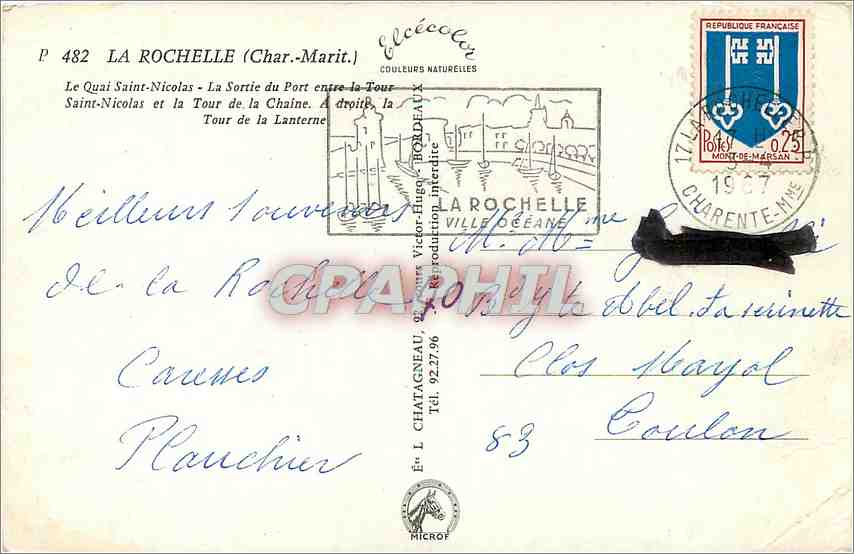 P 482 LA ROCHELLE (Char.-Marit.)
Le Quai Saint-Nicolas - La Sortie du Port entre la Tour
Saint-Nicolas et la Tour de la Chaîne. A droite, la
Tour de la Lanterne
Elcécolor
COULEURS NATURELLES
LA ROCHELLE
VILLE OCÉANE
REPUBLIQUE FRANÇAISE
Postes 0,25
MONT-DE-MARSAN
17 LA ROCHELLE
1967
CHARENTE-Mme
Meilleurs souvenirs
de la Rochelle
Caresses
Plauchier
Éts L CHATAGNEAU, 92 cours Victor-Hugo - BORDEAUX
Tél. 92.27.96 - Reproduction interdite
CPAPHIL
M. Mme
70 Bd Abel
Clos Mayol
83 Toulon
MICROF